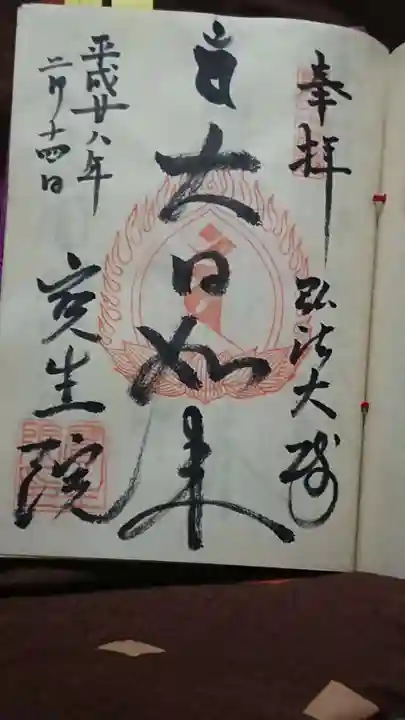 奉拝 弘法大師
大日如来
平成廿八年
二月十四日
寳生院